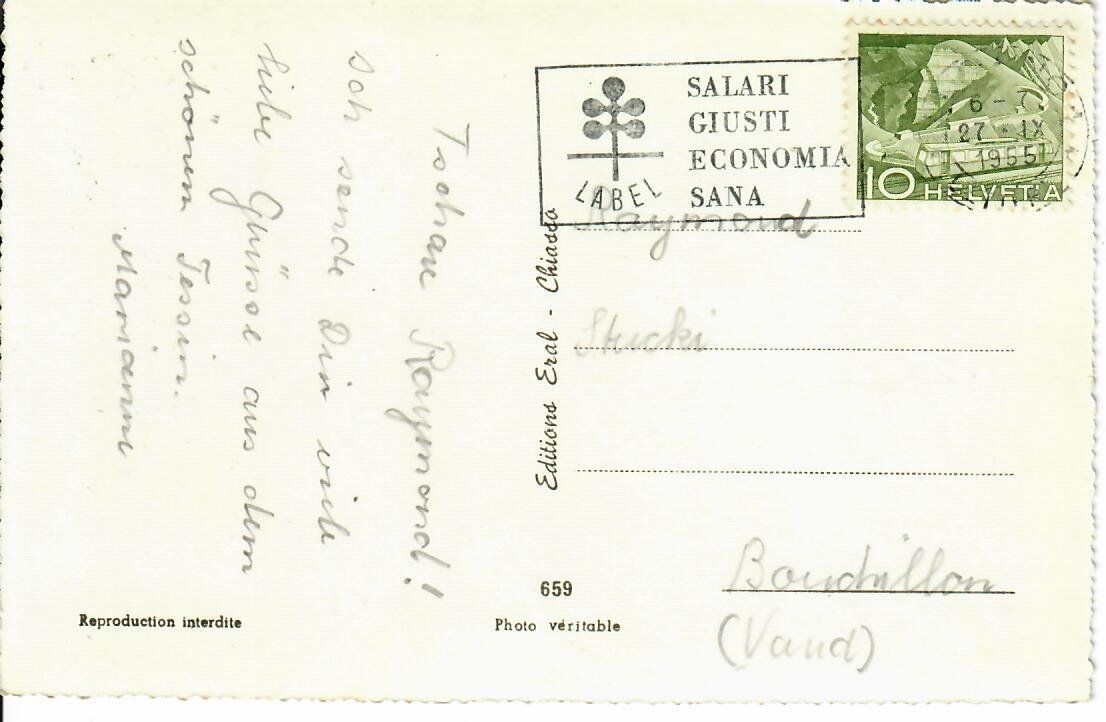 Tschau Raymond!
Ich sende Dir viele
liebe Grüsse aus dem
schönen Tessin.
Marianne
Reproduction interdite
Editions Eral - Chiasso
659
Photo véritable
LABEL
SALARI
GIUSTI
ECONOMIA
SANA
27 . IX
1955
10 HELVETIA
Raymond
Stucki
(Vaud)